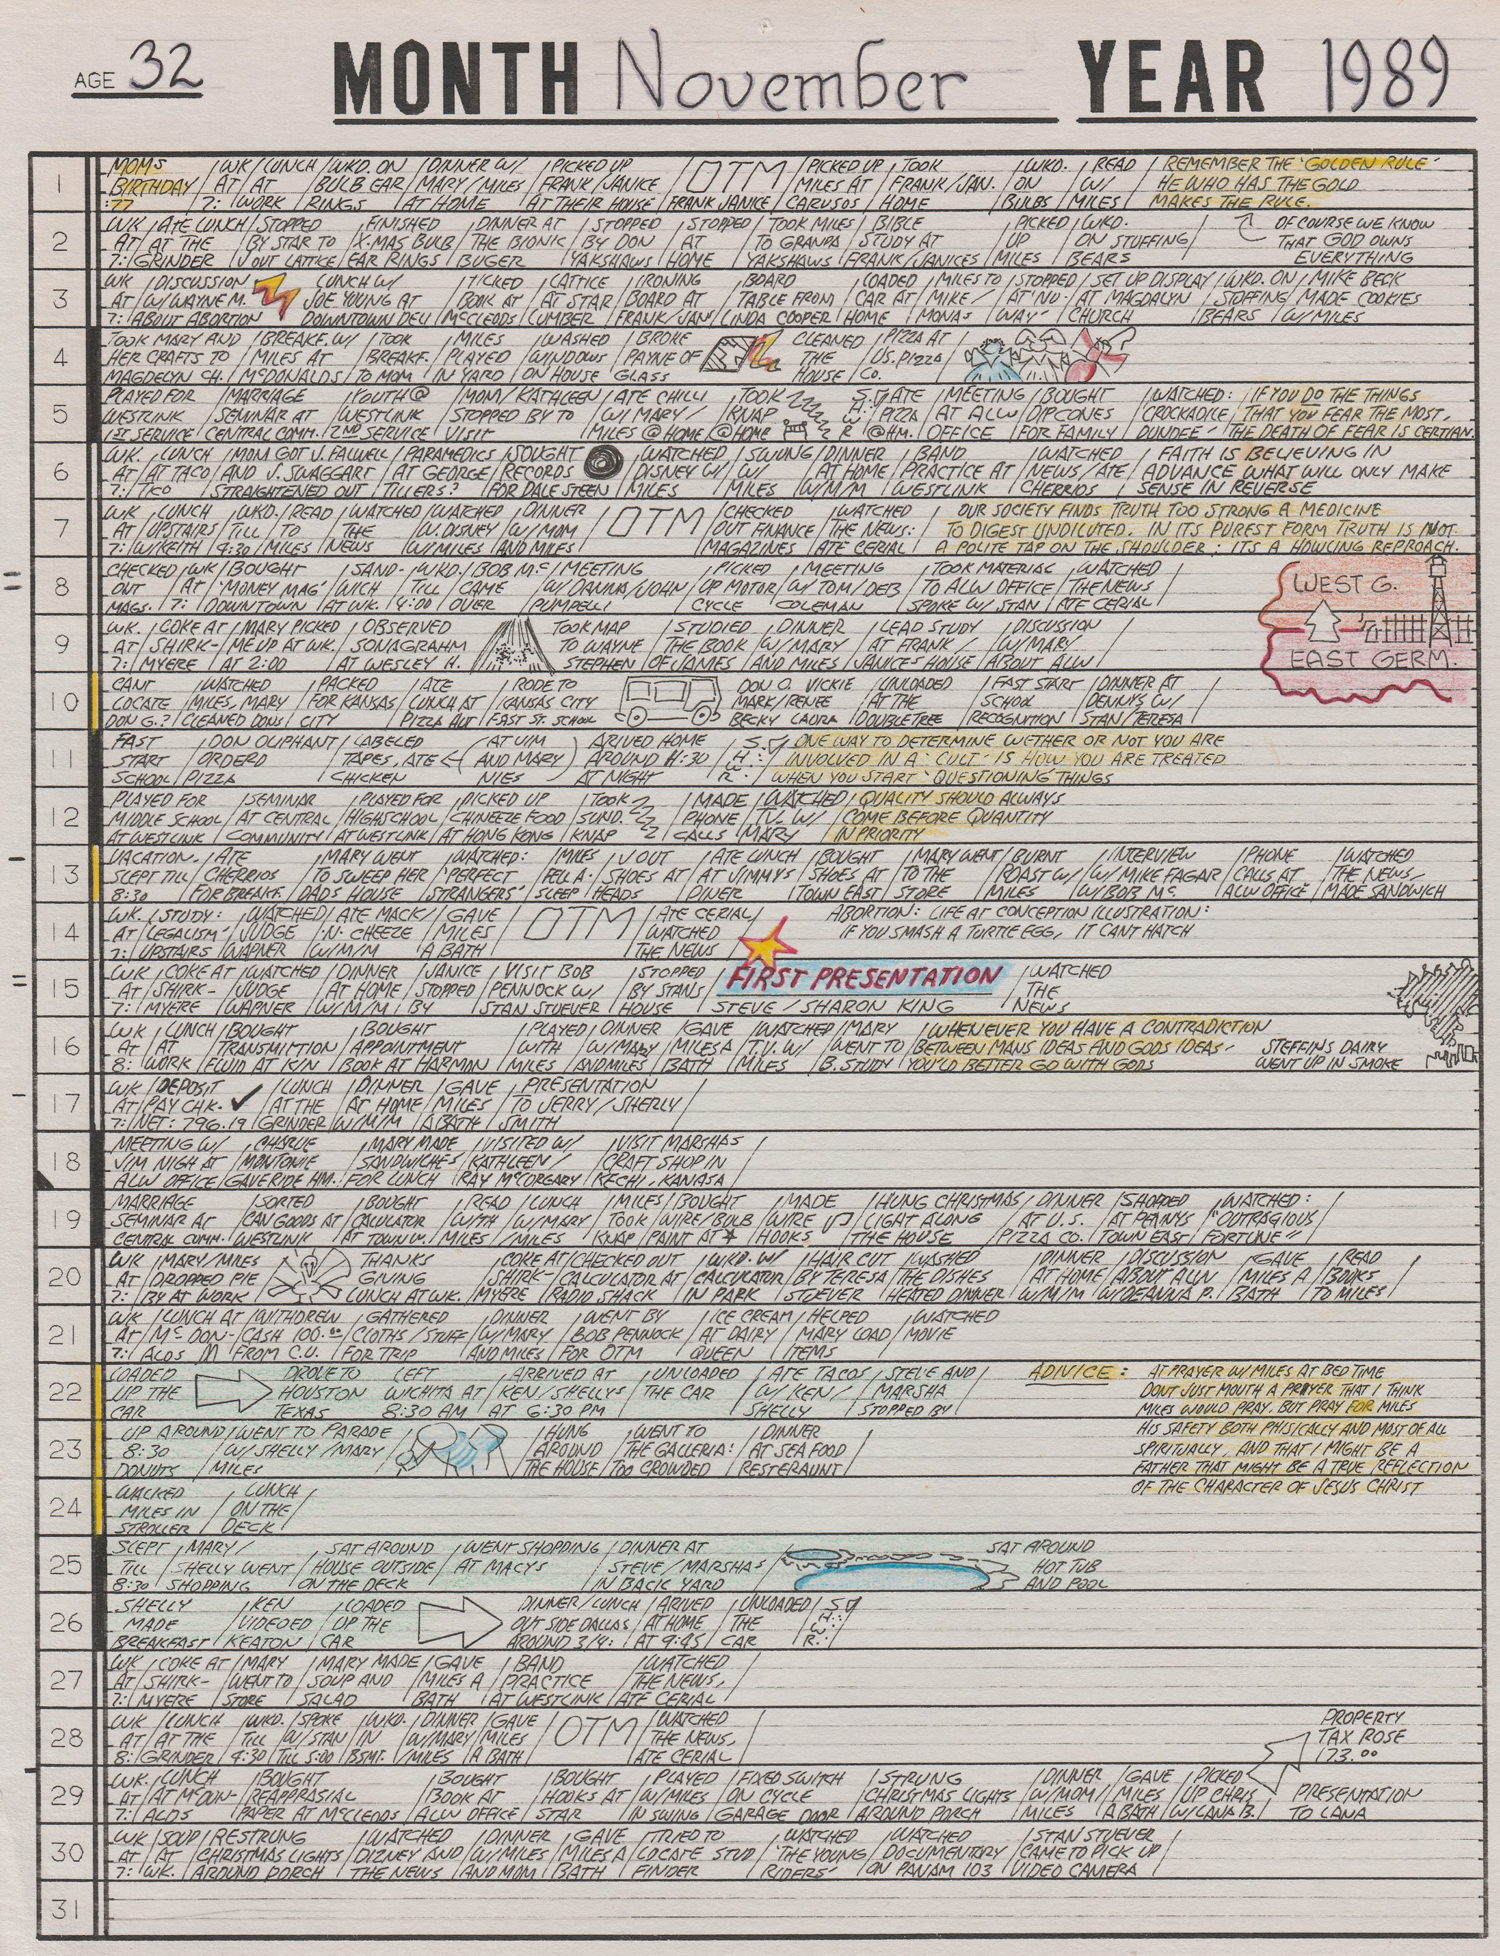 AGE 32 MONTH November YEAR 1989
1
MOMS BIRTHDAY :77
WK AT 7:
LUNCH AT WORK
WKD. ON BULB EAR RINGS
DINNER W/ MARY/MILES AT HOME
PICKED UP FRANK/JANICE AT THEIR HOUSE
OTM FRANK JANICE
PICKED UP MILES AT CARUSOS
TOOK FRANK/JAN. HOME
WKD. ON BULBS
READ W/ MILES
REMEMBER THE 'GOLDEN RULE'
HE WHO HAS THE GOLD
MAKES THE RULE.
2
WK AT 7:
ATE LUNCH AT THE GRINDER
STOPPED BY STAR TO √ OUT LATTICE
FINISHED X-MAS BULB EAR RINGS
DINNER AT THE BIONIC BUGER
STOPPED BY DON YAKSHAWS
STOPPED AT HOME
TOOK MILES TO GRANPA YAKSHAWS
BIBLE STUDY AT FRANK/JANICES
PICKED UP MILES
WKD. ON STUFFING BEARS
OF COURSE WE KNOW
THAT GOD OWNS
EVERYTHING
3
WK AT 7:
DISCUSSION W/ WAYNE M. ABOUT ABORTION
LUNCH W/ JOE YOUNG AT DOWNTOWN DELI
TICKED BOOK AT McCLEODS
LATTICE AT STAR LUMBER
IRONING BOARD AT FRANK/JAN
BOARD TABLE FROM LINDA COOPER
LOADED CAR AT HOME
MILES TO MIKE/MONAS
STOPPED AT 'NU-WAY'
SET UP DISPLAY AT MAGDALYN CHURCH
WKD. ON STOFFING BEARS
MIKE BECK MADE COOKIES W/ MILES
4
TOOK MARY AND HER CRAFTS TO MAGDELYN CH.
BREAKF. W/ MILES AT McDONALDS
TOOK BREAKF. TO MOM
MILES PLAYED IN YARD
WASHED WINDOWS ON HOUSE
BROKE PAYNE OF GLASS
CLEANED THE HOUSE
PIZZA AT US. PIZZA CO.
5
PLAYED FOR WESTLINK 1ST SERVICE
MARRIAGE SEMINAR AT CENTRAL COMM.
YOUTH @ WESTLINK 2ND SERVICE
MOM/KATHLEEN STOPPED BY TO VISIT
ATE CHILLI W/ MARY/MILES @ HOME
TOOK KNAP @ HOME
S. H. W R
ATE PIZZA @ HM.
MEETING AT ALW OFFICE
BOUGHT DIPCONES FOR FAMILY
WATCHED: CROCKADILE DUNDEE
IF YOU DO THE THINGS
THAT YOU FEAR THE MOST,
THE DEATH OF FEAR IS CERTIAN.
6
WK. AT 7:
LUNCH AT TACO TICO
MOM GOT J. FALWELL AND J. SWAGGART STRAIGHTENED OUT
PARAMEDICS AT GEORGE TILLERS?
SOUGHT RECORDS FOR DALE STEEN
WATCHED DISNEY W/ MILES
SWUNG W/ MILES
DINNER AT HOME W/M/M
BAND PRACTICE AT WESTLINK
WATCHED NEWS/ATE CHERRIOS
FAITH IS BELIEVING IN
ADVANCE WHAT WILL ONLY MAKE
SENSE IN REVERSE
7
WK AT 7:
LUNCH UPSTAIRS W/KEITH
WKD. TILL 4:30
READ TO MILES
WATCHED THE NEWS
WATCHED W. DISNEY W/MILES
DINNER W/ MOM AND MILES
OTM
CHECKED OUT FINANCE MAGAZINES
WATCHED THE NEWS: ATE CERIAL
OUR SOCIETY FINDS TRUTH TOO STRONG A MEDICINE
TO DIGEST UNDILUTED. IN ITS PUREST FORM TRUTH IS NOT
A POLITE TAP ON THE SHOULDER; IT'S A HOWLING REPROACH.
8
CHECKED OUT MAGS.
WK AT 7:
BOUGHT 'MONEY MAG' DOWNTOWN
SAND-WICH AT WK.
WKD. TILL 4:00
BOB Mc CAME OVER
MEETING W/ DANNA/JOHN PUMPELLI
PICKED UP MOTOR CYCLE
MEETING W/ TOM/DEB COLEMAN
TOOK MATERIAL TO ALW OFFICE SPOKE W/ STAN
WATCHED THE NEWS ATE CERIAL
WEST G.
EAST GERM.
9
WK. AT 7:
COKE AT SHIRK-MYERE
MARY PICKED ME UP AT WK. AT 2:00
OBSERVED SONAGRAHM AT WESLEY H.
TOOK MAP TO WAYNE STEPHEN
STUDIED THE BOOK OF JAMES
DINNER W/MARY AND MILES
LEAD STUDY AT FRANK/JANICES HOUSE
DISCUSSION W/MARY ABOUT ALW
10
CANT LOCATE DON G.?
WATCHED MILES, MARY CLEANED DONS
PACKED FOR KANSAS CITY
ATE LUNCH AT PIZZA HUT
RODE TO KANSAS CITY FAST ST. SCHOOL
DON O. VICKIE MARK/RENEE BECKY LAURA
UNLOADED AT THE DOUBLETREE
FAST START SCHOOL RECOGNITION
DINNER AT DENNYS W/ STAN/TERESA
11
FAST START SCHOOL
DON OLIPHANT ORDERD PIZZA
LABELED TAPES, ATE CHICKEN
AT VIM AND MARY NIES
ARIVED HOME AROUND 11:30 AT NIGHT
S. H. W. R.
ONE WAY TO DETERMINE WETHER OR NOT YOU ARE
INVOLVED IN A 'CULT' IS HOW YOU ARE TREATED
WHEN YOU START 'QUESTIONING THINGS
12
PLAYED FOR MIDDLE SCHOOL AT WESTLINK
SEMINAR AT CENTRAL COMMUNITY
PLAYED FOR HIGHSCHOOL AT WESTLINK
PICKED UP CHINEEZE FOOD AT HONG KONG
TOOK SUND. KNAP
MADE PHONE CALLS
WATCHED T.V. W/ MARY
QUALITY SHOULD ALWAYS
COME BEFORE QUANTITY
IN PRIORITY
13
VACATION, SLEPT TILL 8:30
ATE CHERRIOS FOR BREAKF.
MARY WENT TO SWEEP HER DADS HOUSE
WATCHED: 'PERFECT STRANGERS'
MILES FELL A-SLEEP
√ OUT SHOES AT HEADS
ATE LUNCH AT JIMMYS DINER
BOUGHT SHOES AT TOWN EAST
MARY WENT TO THE STORE
BURNT ROAST W/ MILES
INTERVIEW W/ MIKE FAGAR W/BOB Mc.
PHONE CALLS AT ALW OFFICE
WATCHED THE NEWS, MADE SANDWICH
14
WK. AT 7:
STUDY: 'LEGALISM' UPSTAIRS
WATCHED JUDGE WAPNER
ATE MACK/'N' CHEEZE W/M/M
GAVE MILES A BATH
OTM
ATE CERIAL WATCHED THE NEWS
ABORTION: LIFE AT CONCEPTION ILLUSTRATION:
IF YOU SMASH A TURTLE EGG, IT CANT HATCH
15
WK AT 7:
COKE AT SHIRK-MYERE
WATCHED JUDGE WAPNER
DINNER AT HOME W/M/M
JANICE STOPPED BY
VISIT BOB PENNOCK W/ STAN STUEVER
STOPPED BY STANS HOUSE
FIRST PRESENTATION
STEVE/SHARON KING
WATCHED THE NEWS
16
WK AT 8:
LUNCH AT WORK
BOUGHT TRANSMITION FLUID AT K/N
BOUGHT APPOINTMENT BOOK AT HARMON
PLAYED WITH MILES
DINNER W/MARY AND MILES
GAVE MILES A BATH
WATCHED T.V. W/ MILES
MARY WENT TO B. STUDY
WHENEVER YOU HAVE A CONTRADICTION
BETWEEN MANS IDEAS AND GODS IDEAS,
YOU'D BETTER GO WITH GODS
STEFFINS DAIRY
WENT UP IN SMOKE
17
WK AT 7:
DEPOSIT PAY CHK. NET: 796.19
LUNCH AT THE GRINDER
DINNER AT HOME W/M/M
GAVE MILES A BATH
PRESENTATION TO JERRY/SHERLY SMITH
18
MEETING W/ JIM NIGH AT ALW OFFICE
CHARLIE MONTONIE GAVE RIDE HM.
MARY MADE SANDWICHES FOR LUNCH
VISITED W/ KATHLEEN/RAY McCORGARY
VISIT MARSHAS CRAFT SHOP IN KECHI, KANASA
19
MARRIAGE SEMINAR AT CENTRAL COMM.
SORTED CAN GOODS AT WESTLINK
BOUGHT CALCULATOR AT TOWN W.
READ WITH MILES
LUNCH W/MARY/MILES
MILES TOOK KNAP
BOUGHT WIRE/BULB PAINT AT
MADE WIRE HOOKS
HUNG CHRISTMAS LIGHT ALONG THE HOUSE
DINNER AT U.S. PIZZA CO.
SHOPPED AT PENNYS TOWN EAST
WATCHED: "OUTRAGIOUS FORTUNE"
20
WK AT 7:
MARY/MILES DROPPED PIE BY AT WORK
THANKS GIVING LUNCH AT WK.
COKE AT SHIRK-MYERE
CHECKED OUT CALCULATOR AT RADIO SHACK
WKD. W/ CALCULATOR IN PARK
HAIR CUT BY TERESA STUEVER
WASHED THE DISHES HEATED DINNER
DINNER AT HOME W/M/M
DISCUSSION ABOUT ALW W/DEANNA P.
GAVE MILES A BATH
READ BOOKS TO MILES
21
WK AT 7:
LUNCH AT McDON-ALDS
WITHDREW CASH 100.00 FROM C.U.
GATHERED CLOTHS/STUFF FOR TRIP
DINNER W/MARY AND MILES
WENT BY BOB PENNOCK FOR OTM
ICE CREAM AT DAIRY QUEEN
HELPED MARY LOAD ITEMS
WATCHED MOVIE
22
LOADED UP THE CAR
DROVE TO HOUSTON TEXAS
LEFT WICHITA AT 8:30 AM
ARRIVED AT KEN/SHELLYS AT 6:30 PM
UNLOADED THE CAR
ATE TACOS W/ KEN/SHELLY
STEVE AND MARSHA STOPPED BY
ADIVICE: AT PRAYER W/ MILES AT BED TIME
DONT JUST MOUTH A PRAYER THAT I THINK
MILES WOULD PRAY. BUT PRAY FOR MILES
HIS SAFETY BOTH PHISICALLY AND MOST OF ALL
SPIRITUALLY, AND THAT I MIGHT BE A
FATHER THAT MIGHT BE A TRUE REFLECTION
OF THE CHARACTER OF JESUS CHRIST
23
UP AROUND 8:30 DONUTS
WENT TO PARADE W/ SHELLY/MARY MILES
HUNG AROUND THE HOUSE
WENT TO THE GALLERIA: TOO CROWDED
DINNER AT SEA FOOD RESTERAUNT
24
WALKED MILES IN STROLLER
LUNCH ON THE DECK
25
SLEPT TILL 8:30
MARY/SHELLY WENT SHOPPING
SAT AROUND HOUSE OUTSIDE ON THE DECK
WENT SHOPPING AT MACYS
DINNER AT STEVE/MARSHAS IN BACK YARD
SAT AROUND HOT TUB AND POOL
26
SHELLY MADE BREAKFAST
KEN VIDEOED KEATON
LOADED UP THE CAR
DINNER/LUNCH OUT SIDE DALLAS AROUND 3/4:
ARIVED AT HOME AT 9:45
UNLOADED THE CAR
S. H. W. R.
27
WK AT 7:
COKE AT SHIRK-MYERE
MARY WENT TO STORE
MARY MADE SOUP AND SALAD
GAVE MILES A BATH
BAND PRACTICE AT WESTLINK
WATCHED THE NEWS, ATE CERIAL
28
WK AT 8:
LUNCH AT THE GRINDER
WKD. TILL 4:30
SPOKE W/STAN TILL 5:00
WKD. IN BSMT.
DINNER W/MARY/MILES
GAVE MILES A BATH
OTM
WATCHED THE NEWS, ATE CERIAL
PROPERTY TAX ROSE 173.00
29
WK. AT 7:
LUNCH AT McDON-ALDS
BOUGHT REAPPRASIAL PAPER AT McCLEODS
BOUGHT BOOK AT ALW OFFICE
BOUGHT HOOKS AT STAR
PLAYED W/MILES IN SWING
FIXED SWITCH ON CYCLE GARAGE DOOR
STRUNG CHRISTMAS LIGHTS AROUND PORCH
DINNER W/MOM/MILES
GAVE MILES A BATH
PICKED UP CHRIS W/LANA B.
PRESENTATION TO LANA
30
WK AT 7:
SOUP AT WK.
RESTRUNG CHRISTMAS LIGHTS AROUND PORCH
WATCHED DIZNEY AND THE NEWS
DINNER W/MILES AND MOM
GAVE MILES A BATH
TRIED TO LOCATE STUD FINDER
WATCHED 'THE YOUNG RIDERS'
WATCHED DOCUMENTARY ON PANAM 103
STAN STUEVER CAME TO PICK UP VIDEO CAMERA
31